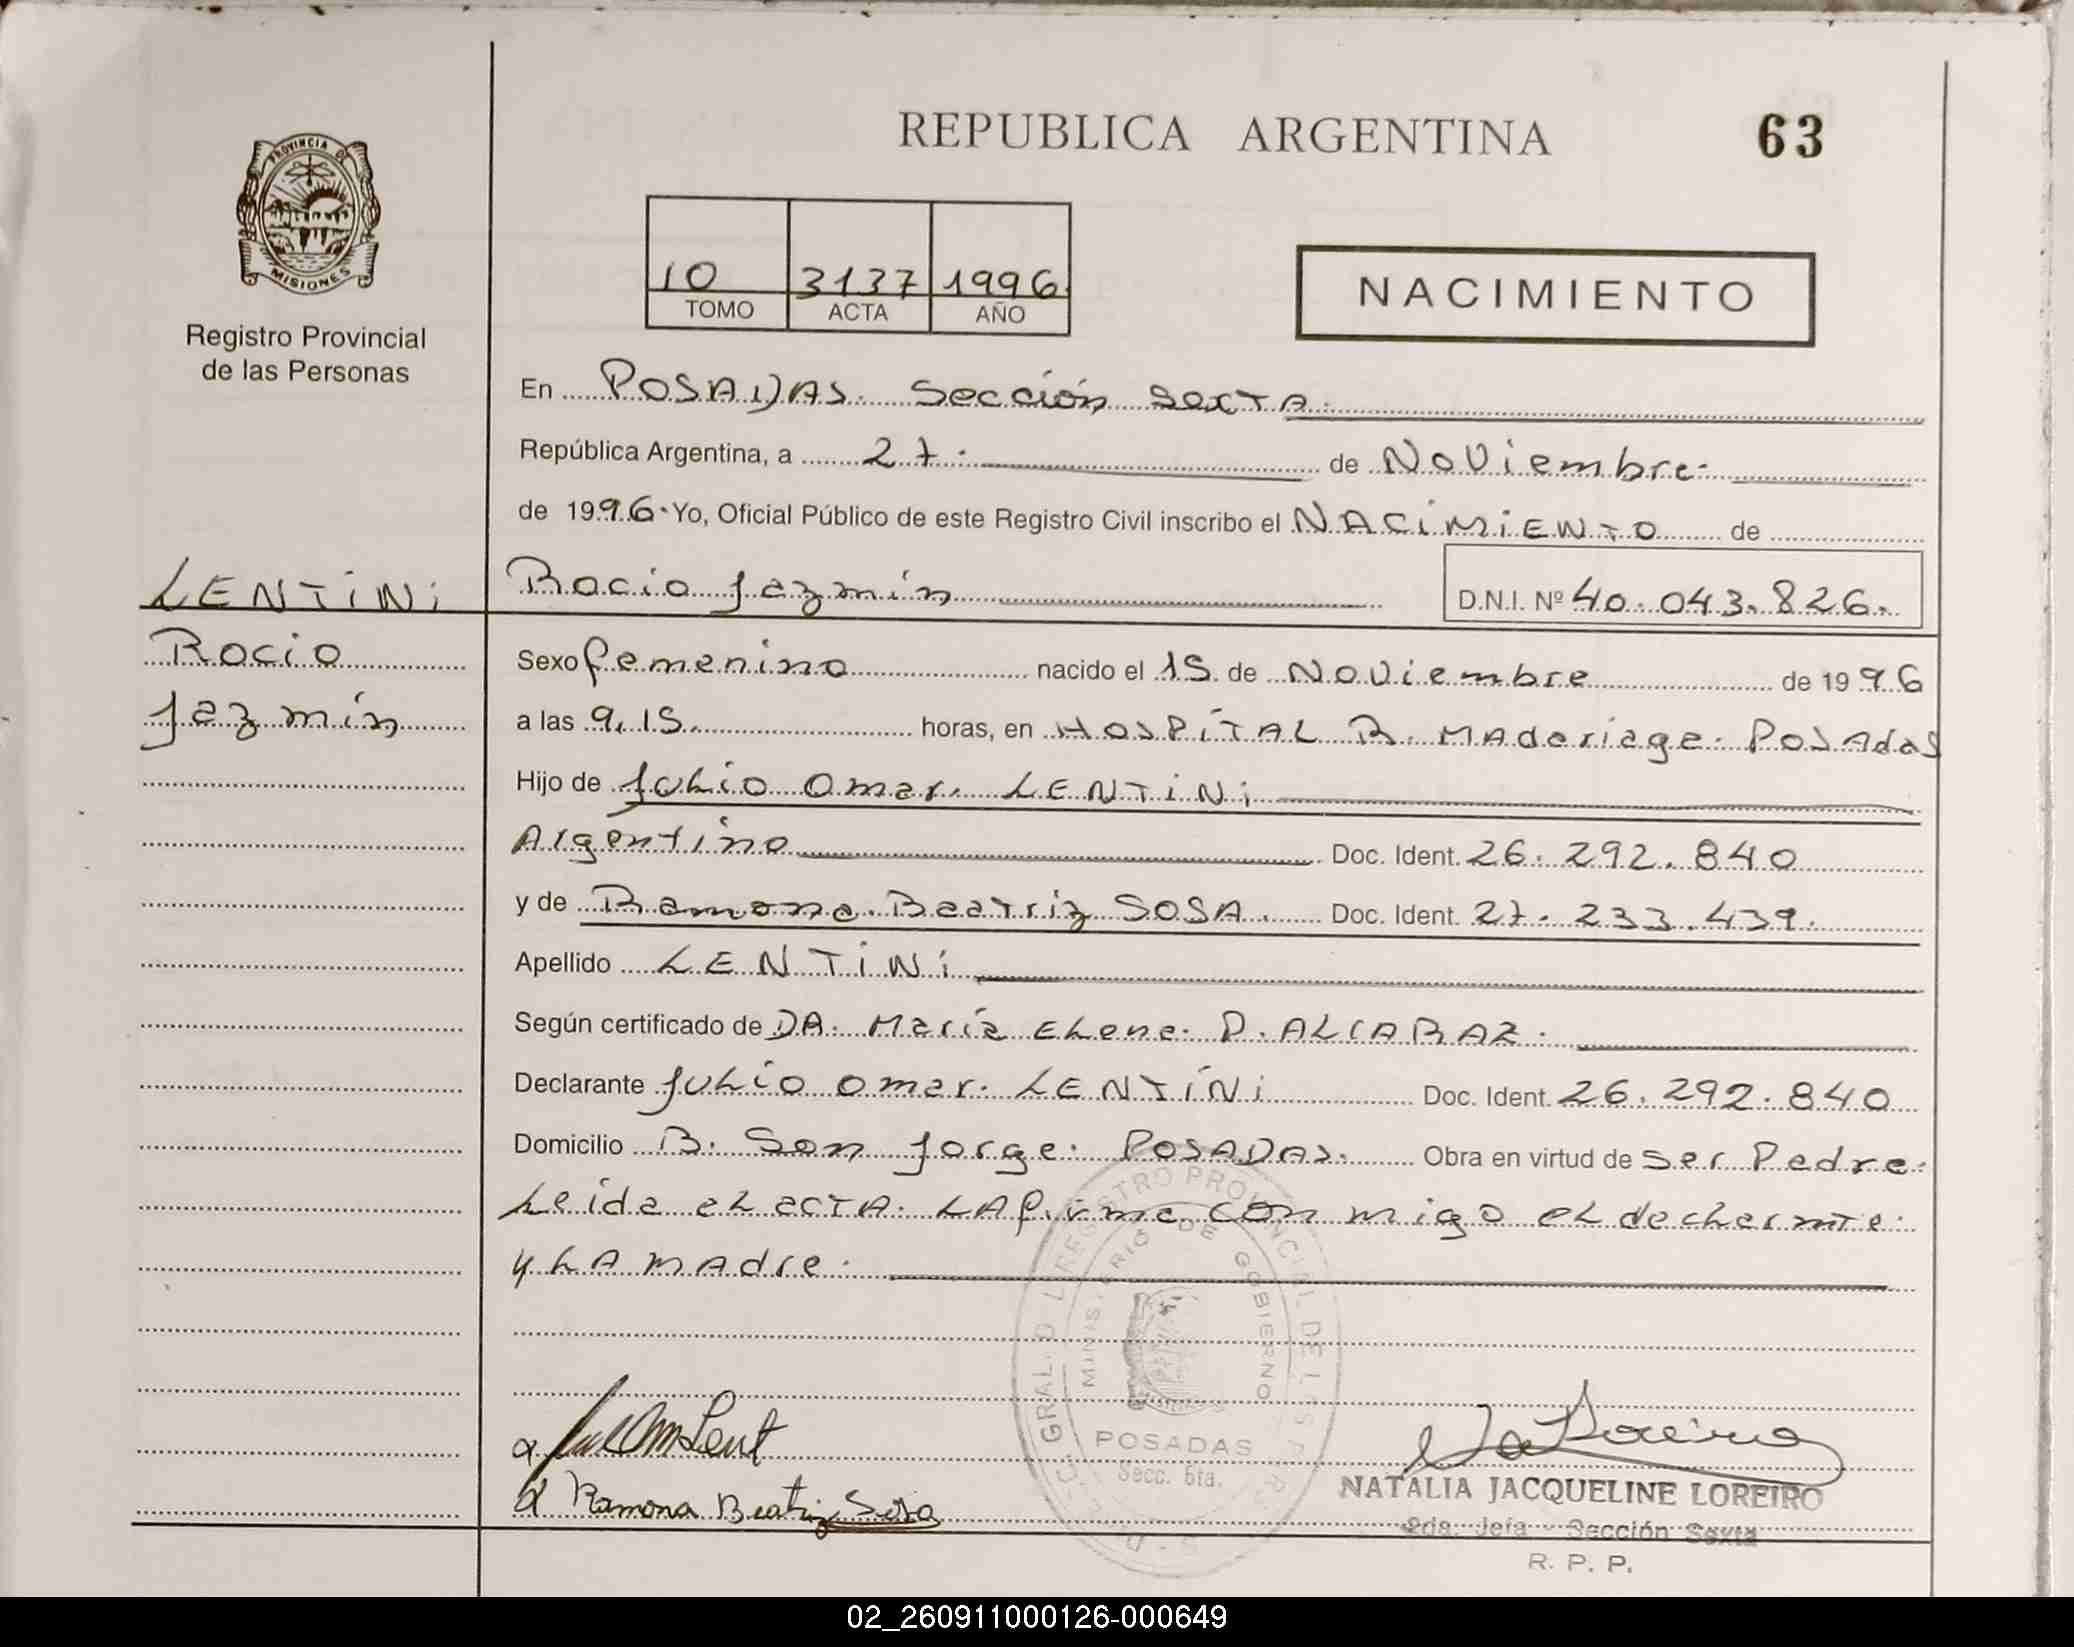 REPUBLICA ARGENTINA
63
PROVINCIA DE
MISIONES
Registro Provincial
de las Personas
10 3137 1996
TOMO ACTA AÑO
NACIMIENTO
En POSADAS. Sección Sexta.
República Argentina, a 27. de Noviembre.
de 1996. Yo, Oficial Público de este Registro Civil inscribo el NACIMIENTO de
LENTINI
Rocio
Jazmín
Rocio Jazmín D.N.I. Nº 40.043.826.
Sexo femenino nacido el 15 de Noviembre de 1996
a las 9,15. horas, en HOSPITAL R. MAdariaga. POSAdas
Hijo de Julio Omar. LENTINI
Argentino Doc. Ident. 26.292.840
y de Ramona. Beatriz SOSA. Doc. Ident. 27.233.439.
Apellido LENTINI
Según certificado de DA. María Elena. P. ALCARAZ.
Declarante Julio Omar. LENTINI Doc. Ident. 26.292.840
Domicilio B. San Jorge. POSADAS. Obra en virtud de ser Padre.
Leida el acTA. LA firma con migo el declarante.
y LA MAdre.
REGISTRO PROVINCIAL DE LAS
MINISTERIO DE GOBIERNO
POSADAS
Secc. 6ta.
Ramona Beatriz Sosa
NATALIA JACQUELINE LOREIRO
2da. Jefa - Sección Sexta
R. P. P.
02_260911000126-000649